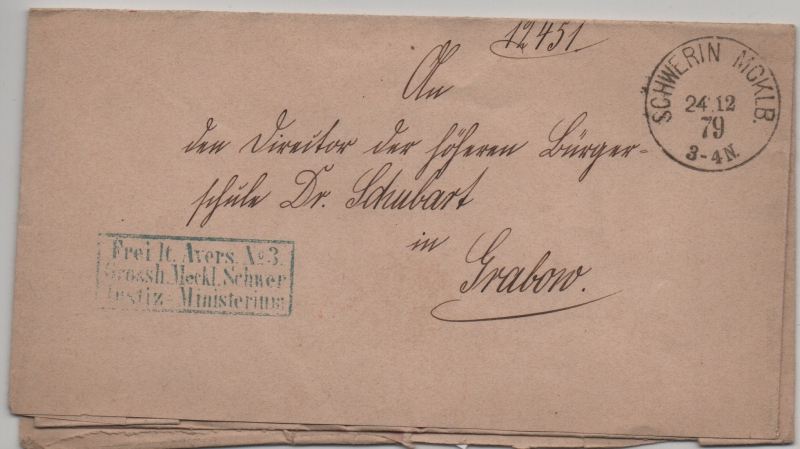 12451.
An
den Director der höheren Bürger-
schule Dr. Schubart
in
Grabow.
SCHWERIN MCKLB.
24 12
79
3-4 N.
Frei lt. Avers. No 3.
Grossh. Meckl. Schwer
Justiz-Ministerium